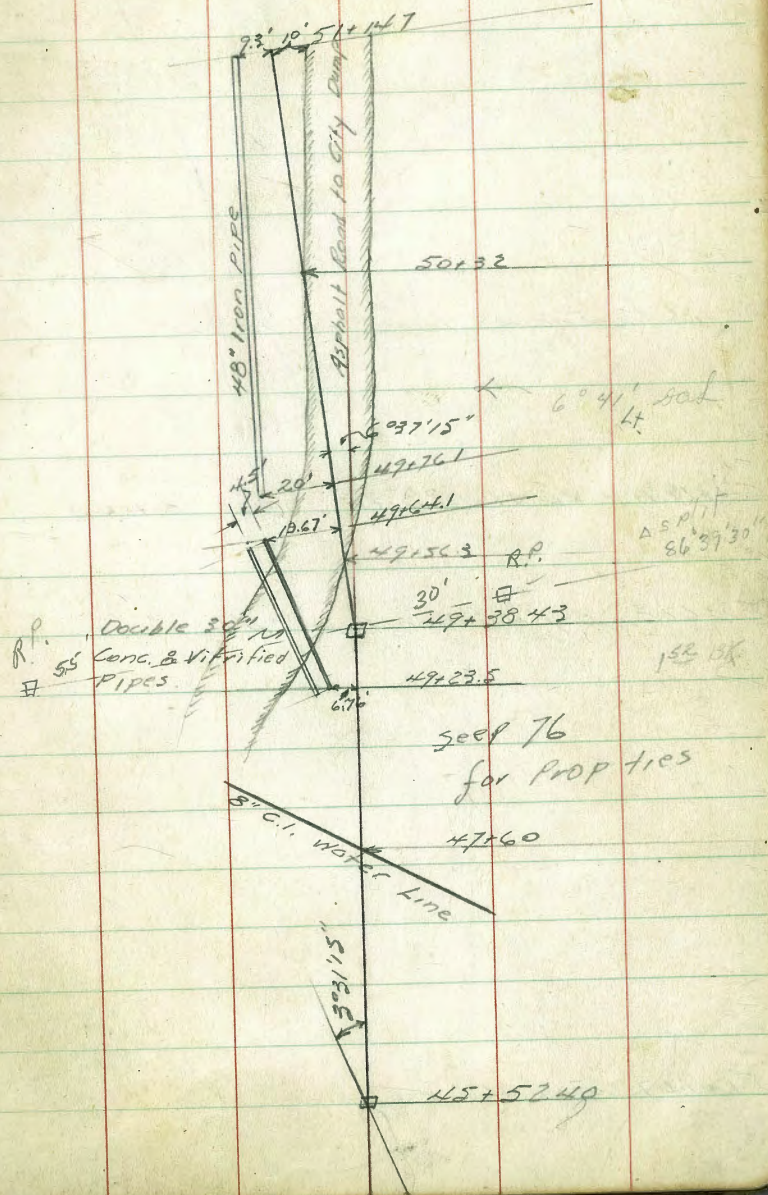 9.3' 10' 51+14.7
48" Iron Pipe
Asphalt Road to City Dump
50+32
6°41'
Lt.
6°37'15"
49+76.1
4.5' 20'
49+64.1
19.67'
49+56.3
R.P.
Δ split
86°39'30"
30'
49+38.43
R.P.
55'
Double 30"
Conc. & Vitrified
Pipes
49+23.5
6.76'
See P 76
for Prop ties
8" C.I. Water Line
47+60
3°31'15"
45+52.49